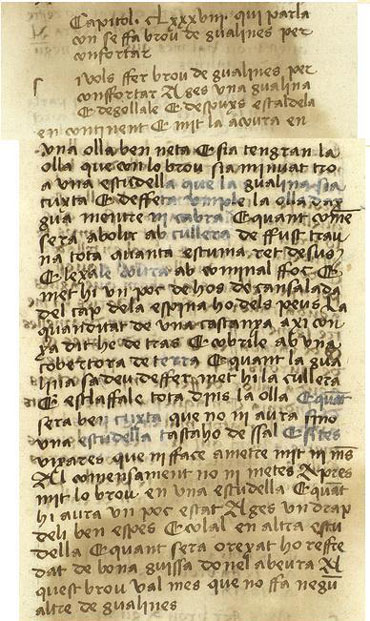 Capitol. CLxxxviiii. qui parla
con se ffa brou de gualines per
confortar
Si vols ffer brou de gualines per
conffortar Ages una gualina
E degollale E despuys escaldela
en continent E mit la a coura en
una olla ben neta E sia tengran la
olla que con lo brou sia minvat tro
a una escudella que la gualina sia
cuyta E deffeta Vmple la olla daygua
gua mentre ni cabra E quant come
sera abolir ab cullera de ffust trau
na tota quanta escuma ret desus
E lexale coura ab cominal ffoc E
met hi un poc de hos de cansalada
del cap dela espina ho dels peus la
quanditat de una castanya axi con
ya dit he de tras E cobrile ab una
cobertora de terra E quant la gua
lina sadeu deffer met hi la cullera
E esclaffale tota dins la olla E quant
sera ben cuyta que no ni aura sino
una escudella tasta ho de ssal E si tes
vixares que ni fface a metre mit ni mes
Al comensament no ni metes Apres
mit lo brou en una escudella E quant
hi aura un poc estat Ages un drap
deli ben espes E colal en altra escu
della E quant sera oreyat ho reffre
dat de bona guissa donel abeura Al
quest brou val mes que no ffa negu
altre de gualines